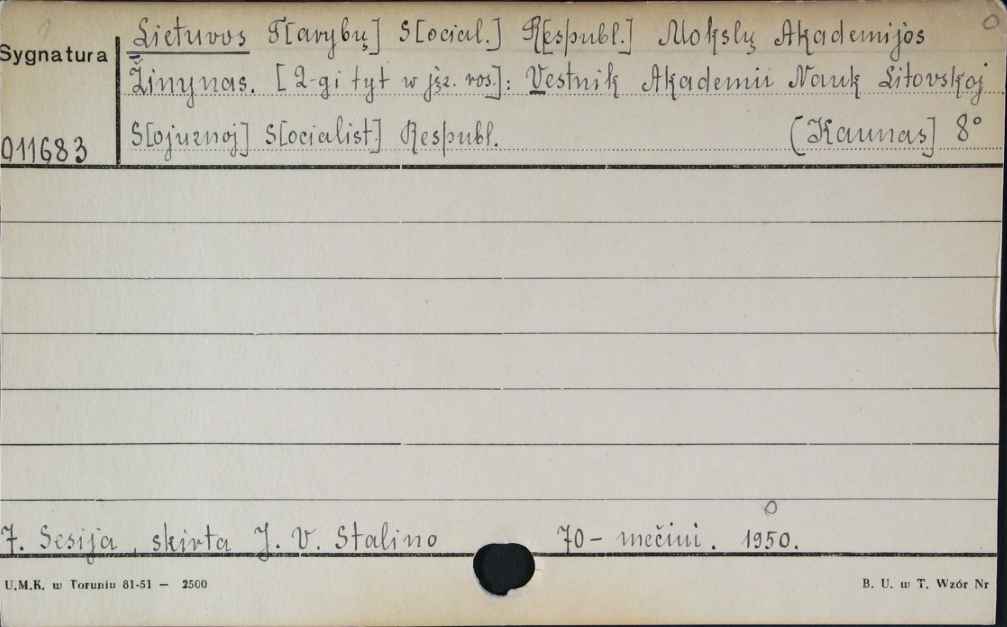 Lietuvos T[arybų] S[ocial.] R[espubl.] Mokslų Akademijos
Sygnatura
Žinynas. [2-gi tyt w jęz. ros.]: Vestnik Akademii Nauk Litovskoj
S[ojuznoj] S[ocialist.] Respubl. [Kaunas] 8°
011683
7. Sesija, skirta J. V. Stalino 70-mečiui. 1950.
U.M.K. w Toruniu 81-51 — 2500 B. U. w T. Wzór Nr